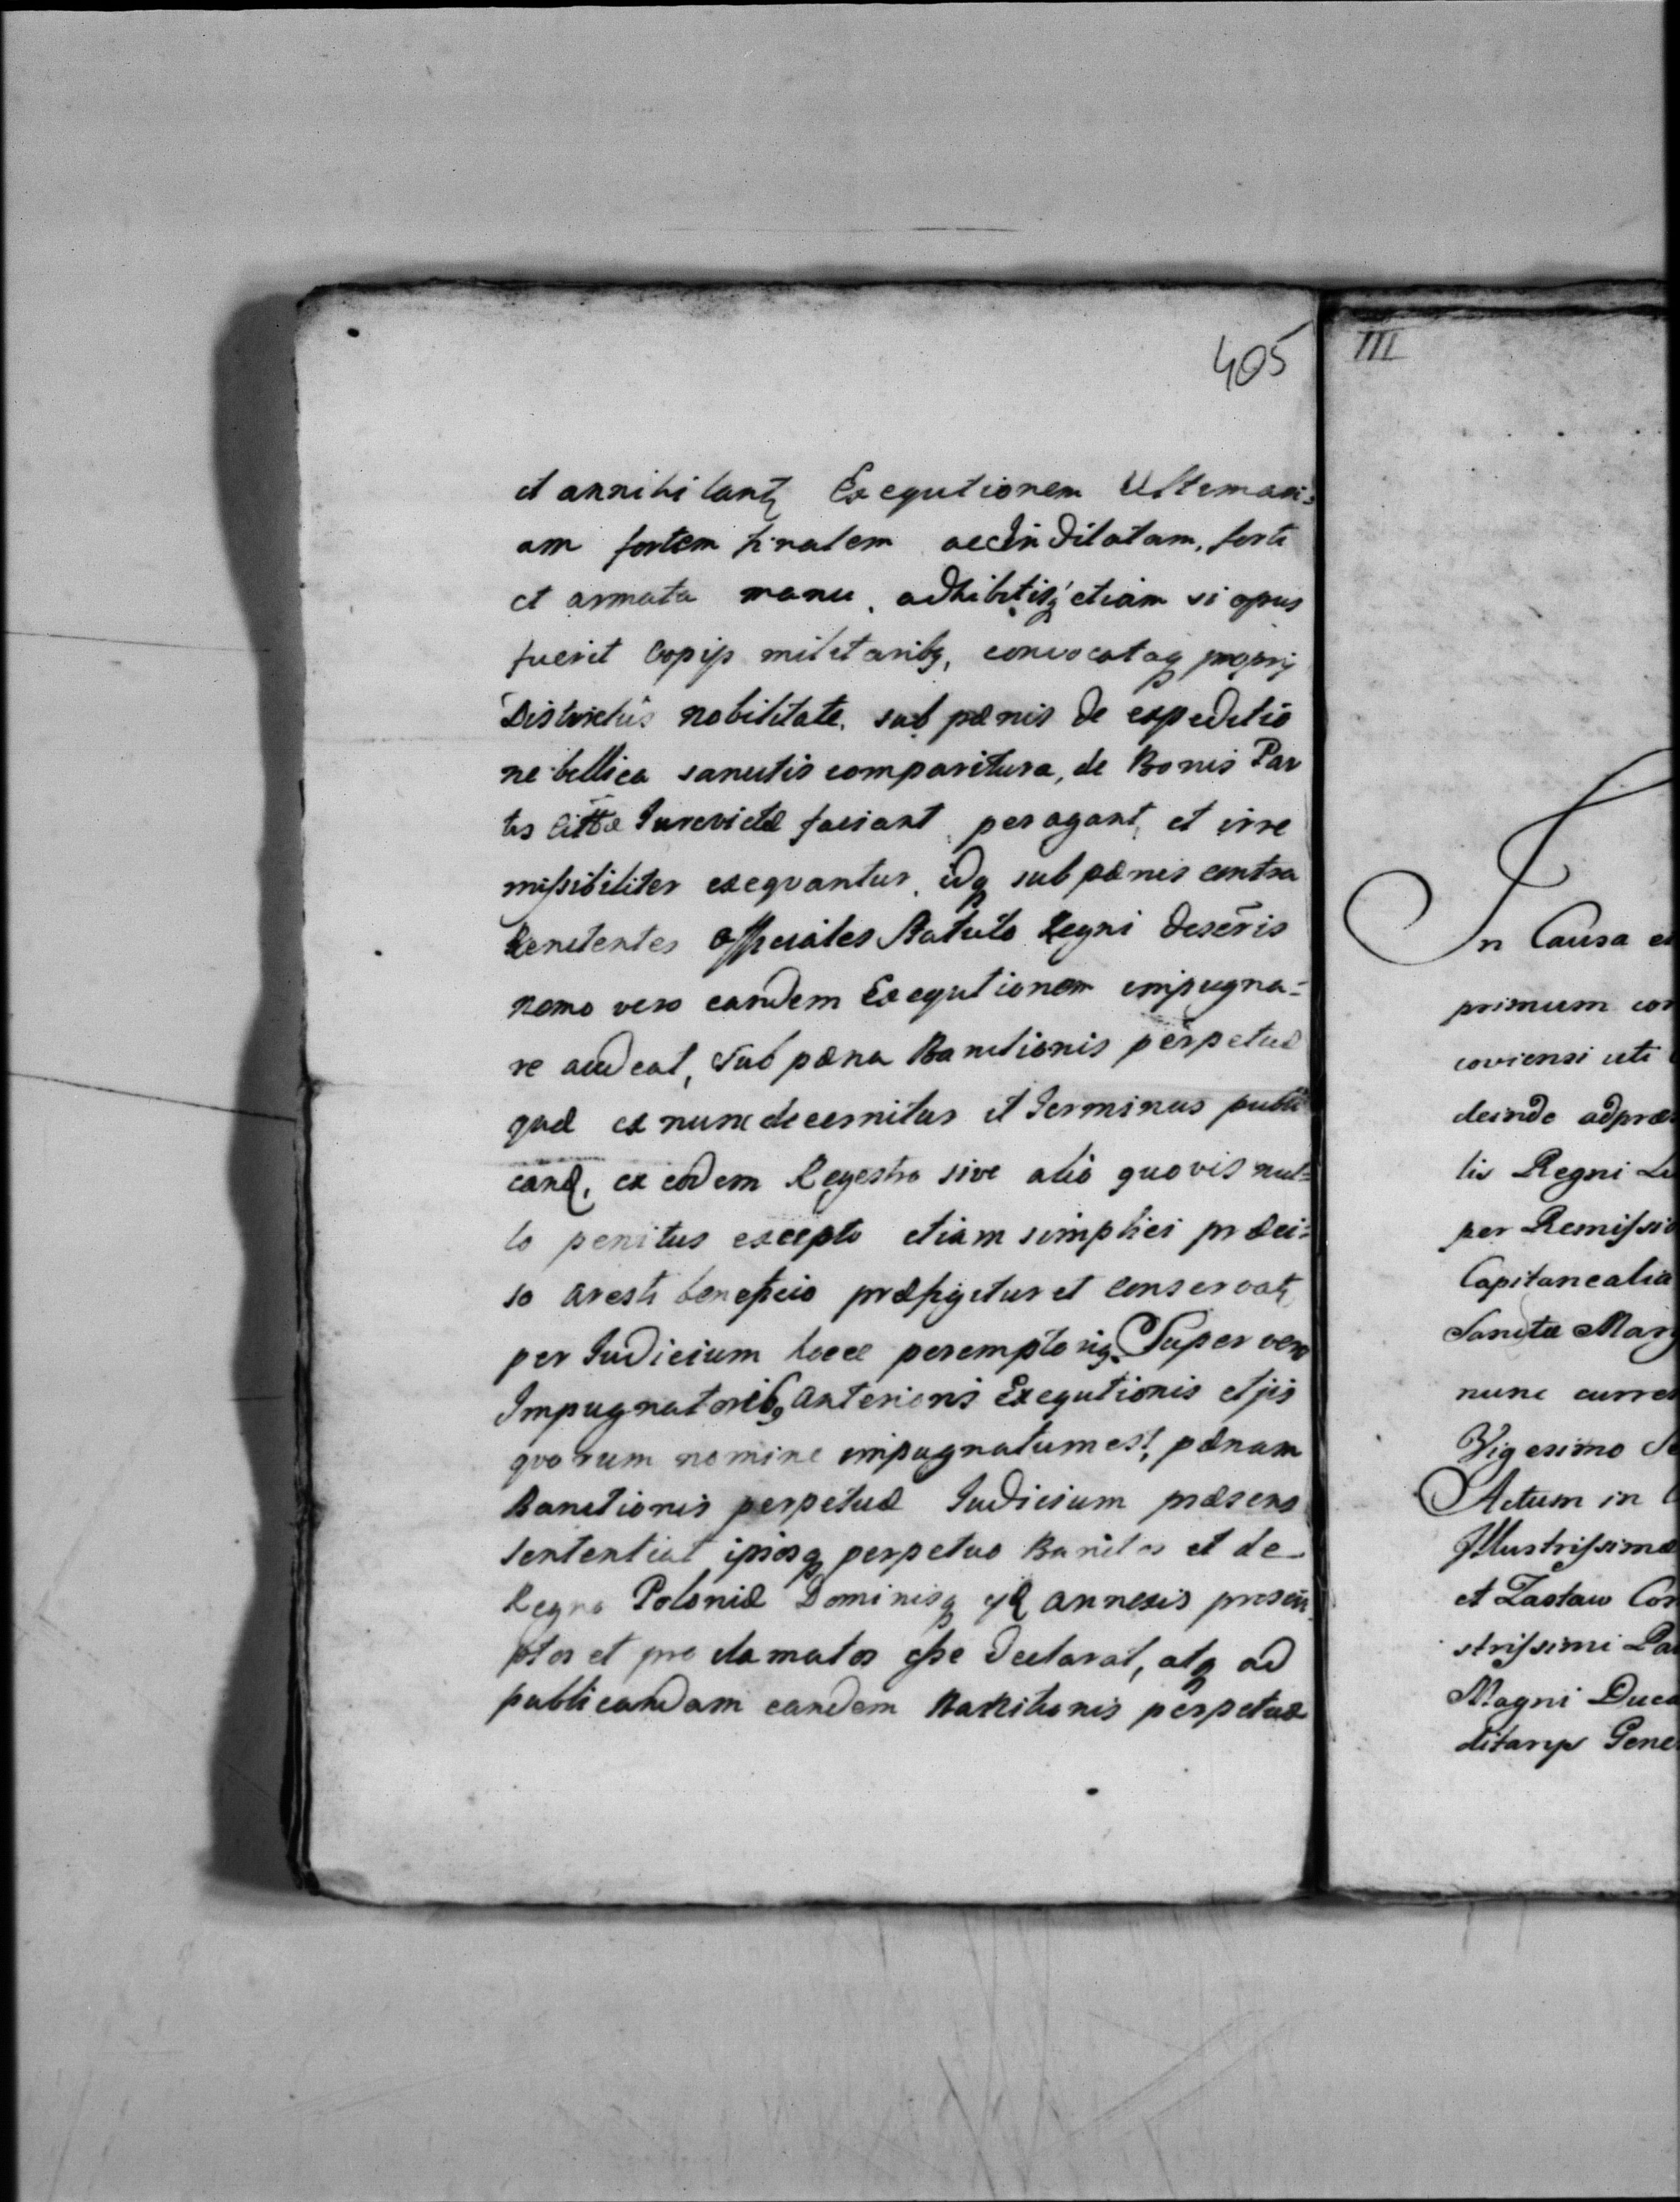 405
et annihilant Exequtionem Ultimari=
am fortem finalem ac indilatam, forti
et armata manu, adhibitisq etiam si opus
fuerit Copijs militaribq, convocataq proprij
Districtus nobilitate, sub pœnis de expeditio
ne bellica sancitis comparitura, de Bonis Par
tis Cittæ Jurevictæ faciant, peragant, et irre
missibiliter exequantur, idq sub pœnis contra
Renitentes Officiales Statuto Regni descris
nemo vero eandem Exequtionem impugna=
re audeat, sub pœna Banitionis perpetuæ
quæ ex nunc decernitur et Terminus publi
cand, ex eodem Regestro sive alio quovis nul=
lo penitus excepto etiam simplici præci=
so aresti beneficio præfigitur et conservat
per Judicium hocce peremptorig. Super vero
Impugnatoribq anterioris Exequtionis et ijs
quorum nomine impugnatum est, pœnam
Banitionis perpetuæ Judicium præsens
sententiat ipsosq perpetuo Banitos et de
Regno Poloniæ Dominisq ejd annexis proscri
ptos et proclamatos esse declarat, atq ad
publicandam eandem Banitionis perpetuæ
III
In Causa et
primum cor
coviensi uti
deinde ad præ
lis Regni Lu
per Remissio
Capitanealia
Sanctæ Mar
nunc curre
Vigesimo Se
Actum in C
Illustrissimæ
et Zastaw Com
strissimi Pa
Magni Duca
ditarijs Gene